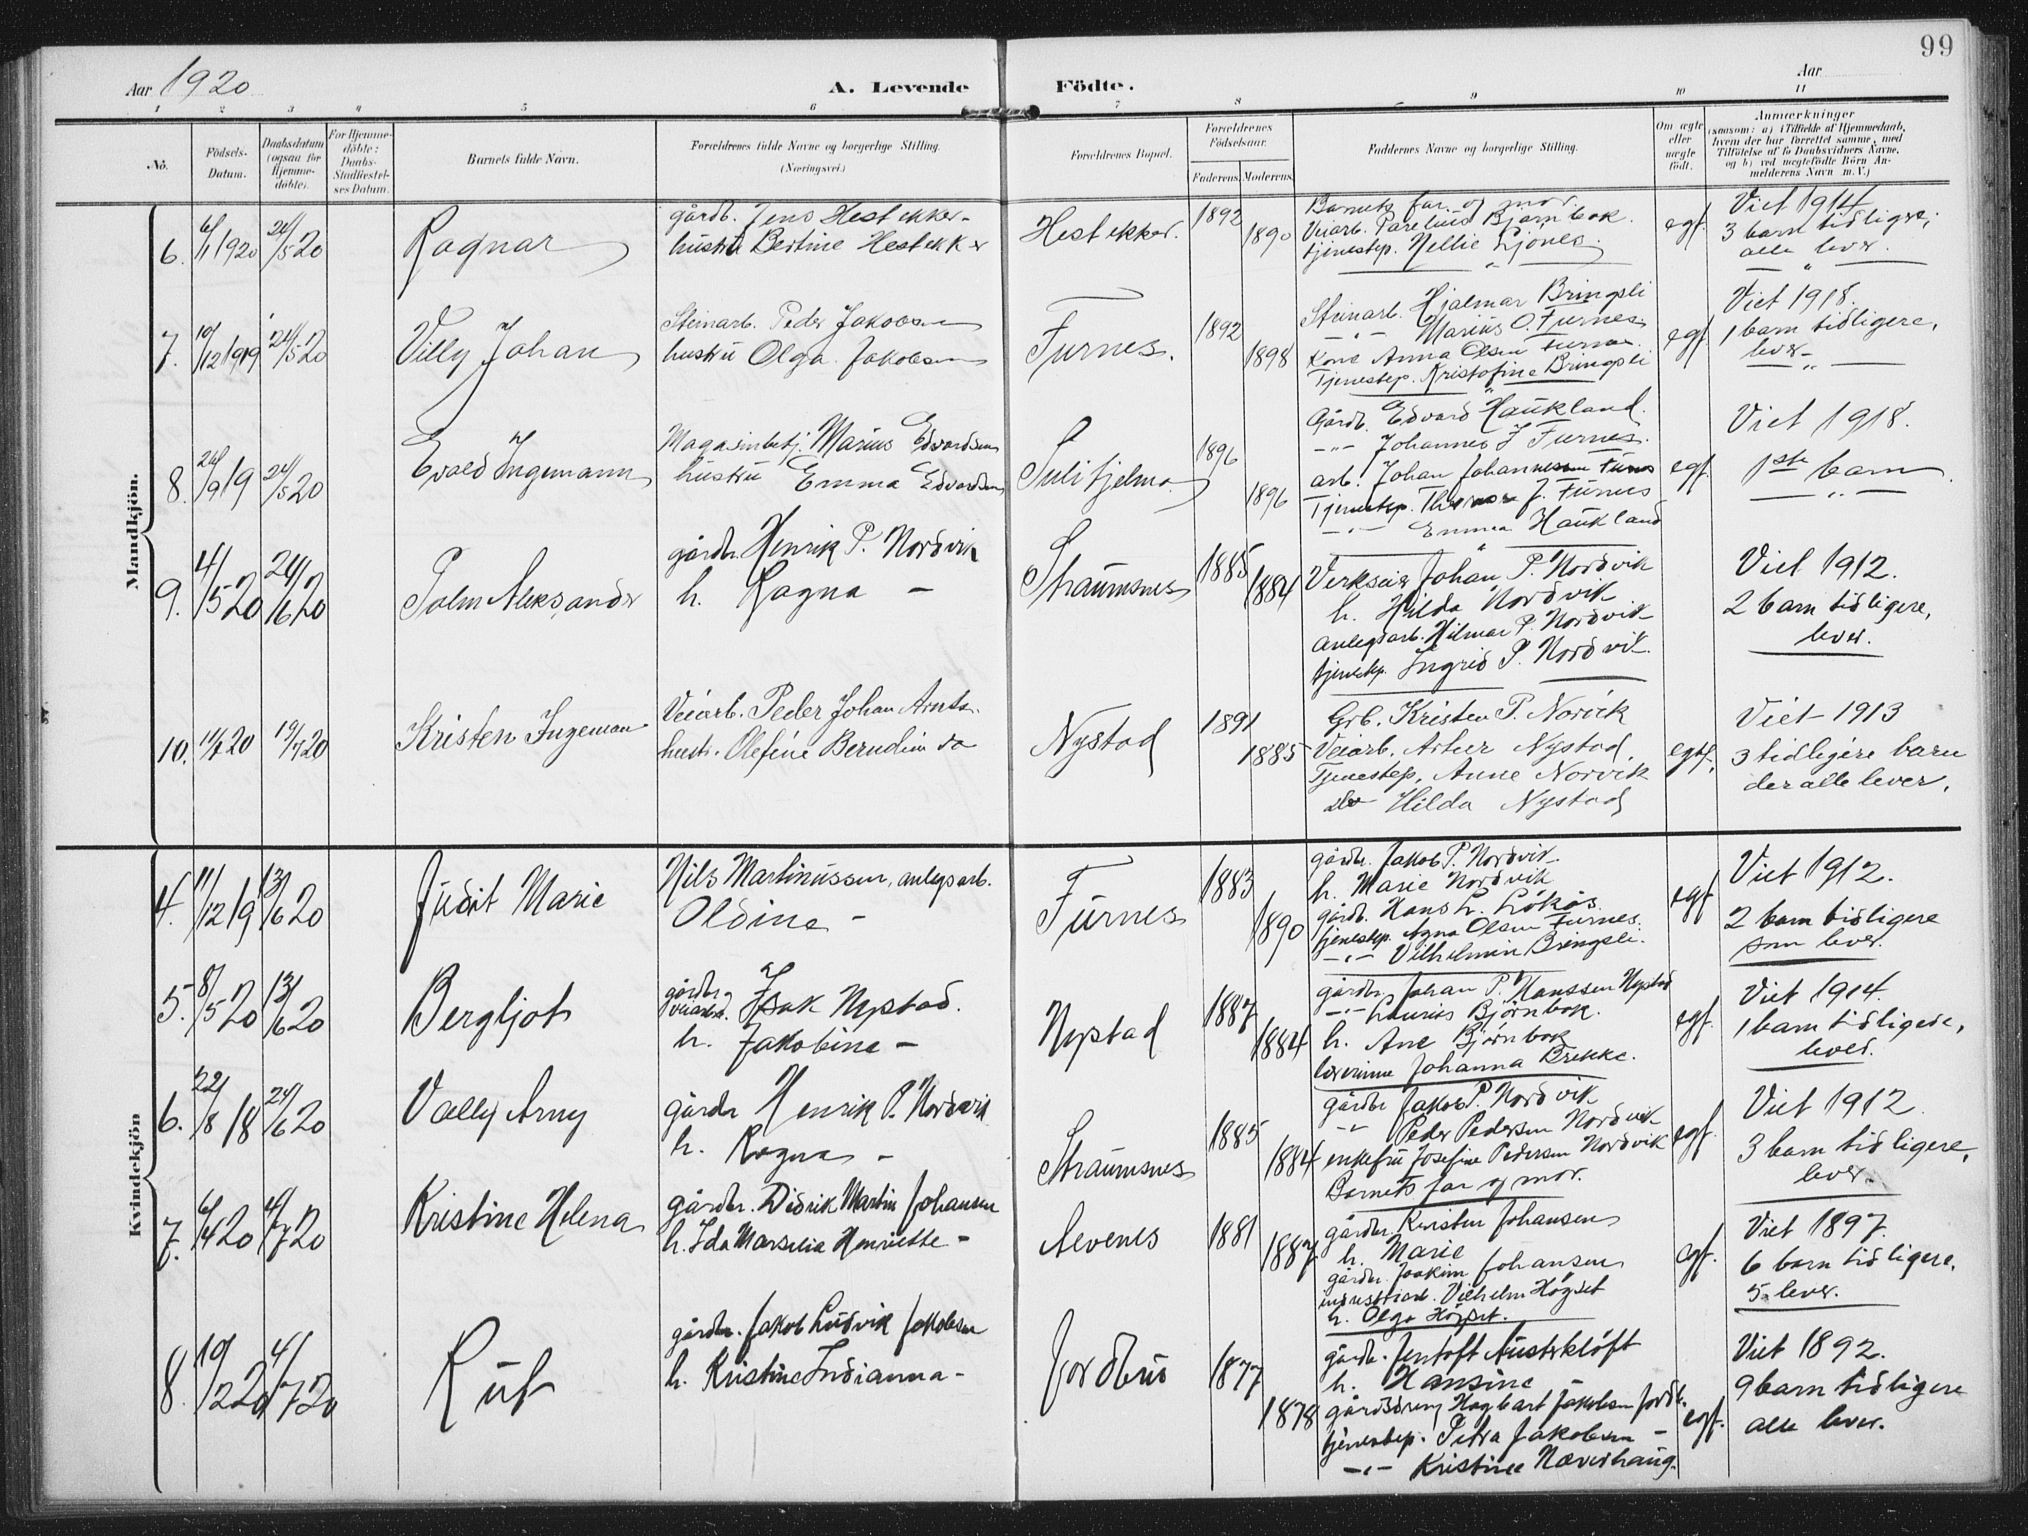 99
Aar 1920
A. Levende
Födte.
Aar
1 2 3 4 5 6 7 8 9 10 11
No.
Födsels-
Datum.
Daabsdatum
(ogsaa for
Hjemme-
döbte).
For Hjemme-
döbte:
Daabs-
Stadfæstel-
ses Datum.
Barnets fulde Navn.
Forældrenes fulde Navne og borgerlige Stilling.
(Næringsvei.)
Forældrenes Bopæl.
Forældrenes
Födselsaar.
Faderens. Moderens.
Faddernes Navne og borgerlige Stilling.
Om ægte
eller
uægte
födt.
Anmærkninger
(saasom: a) i Tilfælde af Hjemmedaab,
hvem der har forrettet samme, med
Tilföielse af to Daabsvidners Navne,
og b) ved uægtefödte Börn An-
melderens Navn m. V.)
Mandkjön.
6. 6/1 1920 24/5 20 Ragnar
gårdb. Jens Hestekker-
hustru Bertine Hestekker
Hestekker. 1892 1890
Barnets far og mor.
Veiarb. Parelius Bjørnbak.
tjenestep. Nellie Ljönes.
egf.
Viet 1914
3 barn tidligere;
alle lever.
7. 10/12 1919 24/5 20 Villy Johan
Steinarb. Peder Jakobsen
hustru Olga Jakobsen
Furnes. 1892 1898
Steinarb. Hjalmar Bringsli
-"- Marius O. Furnes.
Kone Anna Olsen Furnes.
Tjenestep. Kristofine Bringsli
egf
Viet 1918.
1 barn tidligere,
lever-
8. 24/9 19 24/5 20 Evald Ingemann
Magasinbetj. Marius Edvardsen
hustru Emma Edvardsen
Sulitjelma 1896 1896
Gårdb. Edvard Haukland.
-"- Johannes J Furnes.
arb. Johan Johannessen Furnes
Tjenestep. J. Furnes
-"- Emma Haukland
egf.
Viet 1918.
1ste barn
9. 4/5 20 24/6 20 Palm Aleksander
gårdbr. Henrik P. Nordvik
h. Ragna -
Straumsnes 1885 1884
Verkseier Johan P. Nordvik
h. Hilda Nordvik
anlegsarb. Hilmar P. Nordvik
tjenestep. Ingrid P. Nordvik.
Viet 1912.
2 barn tidligere,
lever.
10. 11/1 20 19/7 20 Kristen Ingeman
Veiarb. Peder Johan Arnts.
hustr. Olefine Berndine do
Nystad 1891 1885
Grb. Kristen P. Norvik
Veiarb. Artur Nystad,
Tjenestep, Anne Norvik
do Hilda Nystad
egtf.
Viet 1913
3 tidligere barn
der alle lever.
Kvindekjön
4. 11/12 19 13/6 20 Judit Marie
Nils Martinussen, anlegsarb.
Oldine -
Furnes 1883 1890
gårdbr. Jakob P. Nordvik
h. Marie Nordvik
gårdb. Hans L. Løkås.
tjenestep. Agna Olsen Furnes.
-"- Vilhelmine Bringsli.
egf
Viet 1912.
2 barn tidligere
som lever.
5. 8/5 20 13/6 20 Bergljot
gårdbr.
veiarbd. Isak Nystad.
h. Jakobine -
Nystad 1887 1884
gårdbr. Johan P. Hanssen Nystad
-"- Laurits Bjørnbak.
h. Ane Bjørnbak
lærerinne Johanna Brekke.
egf.
Viet 1914.
1 barn tidligere,
lever.
6. 22/8 18 24/6 20 Vally Arny
gårdbr Henrik P. Nordvik
h. Ragna -
Straumsnes 1885 1884
gårdbr Jakob P. Nordvik
-"- Peder Pedersen Nordvik
enkefru Josefine Pedersen Nordvik
Barnets far og mor.
egf.
Viet 1912.
3 barn tidligere,
lever.
7. 6/4 20 4/7 20 Kristine Helena
gårdbr. Didrik Martin Johansen
h. Ida Marselia Henriette -
Aevenes 1881 1887
gårdbr Kristen Johansen
h. Marie
gårdbr. Joakim Johansen
industriarb. Vilhelm Högset
h. Olga Högset.
egf.
Viet 1897.
6 barn tidligere,
5 lever.
8. 19/2 20 4/7 20 Rut
gårdbr. Jakob Ludvik Jakobsen
h. Kristine Indianna -
Jordbru 1877 1878
gårdb. Jentoft Austerklöft
h. Hansine
gårdsdreng Hagbart Jakobsen Jordb.
tjenestep. Petra Jakobsen -
-"- Kristine Næverhaug.
egf.
Viet 1892.
9 barn tidligere
alle lever.